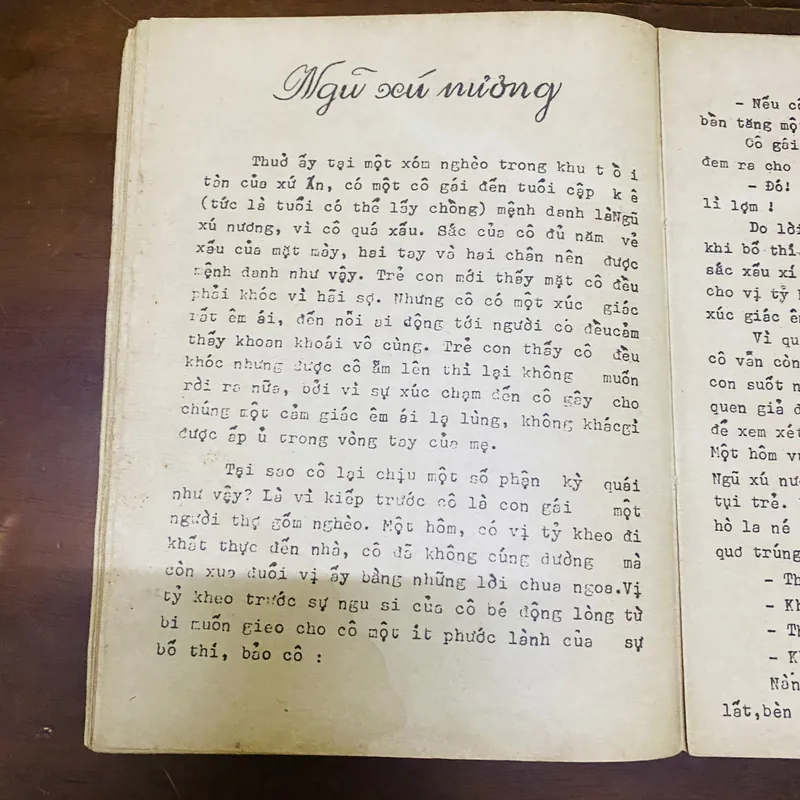 Ngũ xú nương
Thuở ấy tại một xóm nghèo trong khu tồi
tàn của xứ Ấn, có một cô gái đến tuổi cập kê
(tức là tuổi có thể lấy chồng) mệnh danh làNgũ
xú nương, vì cô quá xấu. Sắc của cô đủ năm vẻ
xấu của mặt mày, hai tay và hai chân nên được
mệnh danh như vậy. Trẻ con mới thấy mặt cô đều
phải khóc vì hãi sợ. Nhưng cô có một xúc giác
rất êm ái, đến nỗi ai động tới người cô đềucảm
thấy khoan khoái vô cùng. Trẻ con thấy cô đều
khóc nhưng được cô ẵm lên thì lại không muốn
rời ra nữa, bởi vì sự xúc chạm đến cô gây cho
chúng một cảm giác êm ái lạ lùng, không khácgì
được ấp ủ trong vòng tay của mẹ.
Tại sao cô lại chịu một số phận kỳ quái
như vậy? Là vì kiếp trước cô là con gái một
người thợ gốm nghèo. Một hôm, có vị tỷ kheo đi
khất thực đến nhà, cô đã không cúng dường mà
còn xua đuổi vị ấy bằng những lời chua ngoa.Vị
tỷ kheo trước sự ngu si của cô bé động lòng từ
bi muốn gieo cho cô một ít phước lành của sự
bố thí, bảo cô :
- Nếu cô
bần tăng một
Cô gái
đem ra cho
- Đó!
lì lợm !
Do lời
khi bố thí
sắc xấu xí
cho vị tỷ
xúc giác êm
Vì qu
cô vẫn còn
con suốt n
quen giả đ
để xem xét
Một hôm vu
Ngũ xú nư
tụi trẻ.
hò la né
quơ trúng
- Th
- Kh
- Th
- Kh
Nàn
lất,bèn